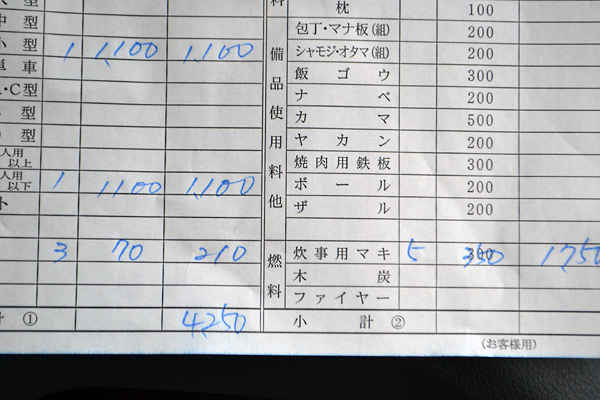 枕 100
中型 包丁・マナ板(組) 200
小型 1 1,100 1,100 シャモジ・オタマ(組) 200
車 備品使用料他 飯ゴウ 300
・C型 ナベ 200
型 カマ 500
型 ヤカン 200
人用以上 焼肉用鉄板 300
人用以下 1 1,100 1,100 ボール 200
ト ザル 200
3 70 210 燃料 炊事用マキ 5 350 1,750
木炭
ファイヤー
計 ① 4,250 小計 ②
(お客様用)